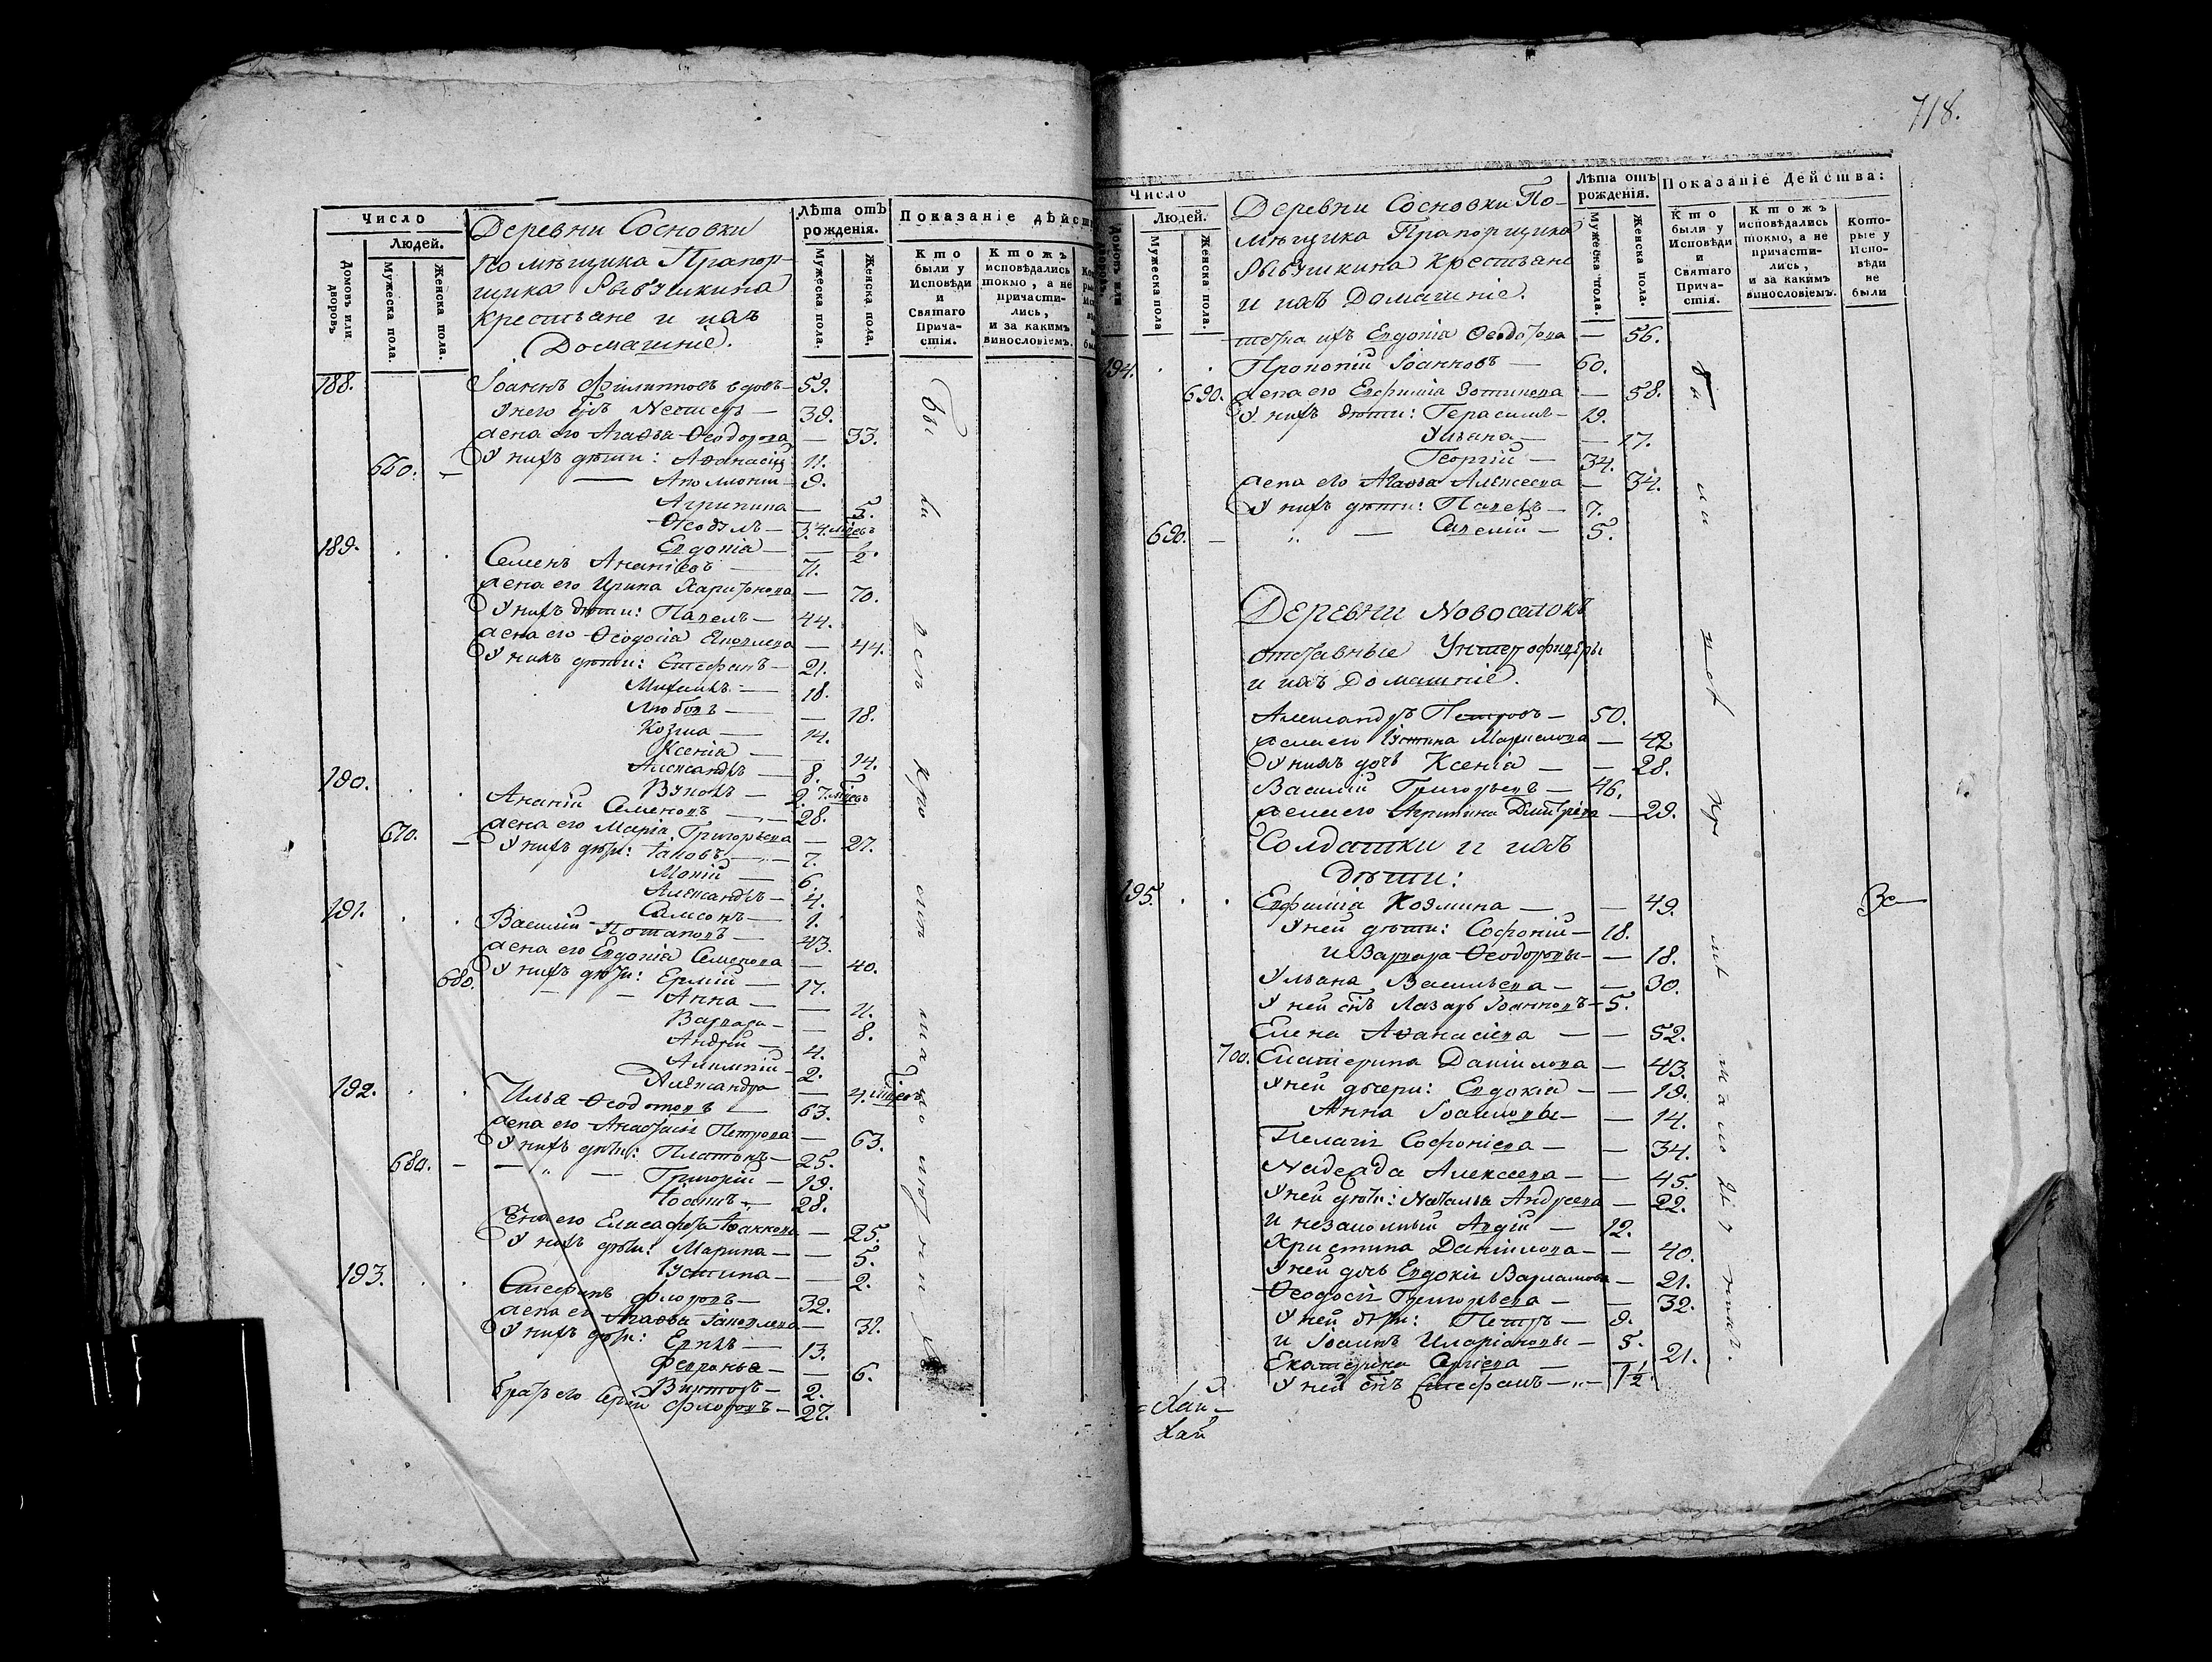 Число
Людей.
Домовъ или дворовъ
Мужеска пола.
Женска пола.
Деревни Сосновки
помѣщика Прапор-
щика Рыбушкина
крестьяне и ихъ
Домашніе.
Лѣта отъ рожденія.
Мужеска пола.
Женска пола.
Показаніе дѣйст
Кто были у Исповѣди и Святаго Прича-стія.
Ктожъ исповѣдались токмо, а не причасти-лись, и за какимъ винословіемъ.
188. Іоаннъ Филиповъ вдовъ — 59.
У него сынъ — 39.
жена его Агаѳья Ѳеодорова — 33.
660. У нихъ дѣти: Аѳанасій 11.
9.
Агрипина — 5.
3. 4. мѣсяцъ
Евдокія — 1/2.
189. Семенъ Ананьевъ — 71.
жена его Ирина Харитонова — 70.
У нихъ дѣти: Павелъ — 44.
жена его Ѳеодосія — 44.
У нихъ дѣти: Стефанъ — 21.
Михаилъ — 18.
Любовь — 18.
Козма — 14.
Ксенія — 14.
Александръ — 8.
Вуколъ — 2. 7. мѣсяцъ
190. Ананій Семеновъ — 28.
670. жена его Марѳа Григорьева — 27.
У нихъ дѣти: Іаковъ — 7.
Мокій — 6.
Александръ — 4.
Самсонъ — 1.
191. Василій Потаповъ — 43.
жена его Евдокія Семенова — 40.
680. У нихъ дѣти: Ермій — 17.
Анна — 11.
Варвара — 8.
Андрей — 4.
Алимпій — 2.
Александра — 4. мѣсяцъ
192. Илья Ѳеодотовъ — 63.
жена его Анастасія Петрова — 63.
У нихъ дѣти: Платонъ — 25.
680. Григорій — 19.
Іоаннъ — 28.
жена его Елисавета Іоаннова — 25.
У нихъ дѣти: Марина — 5.
Іустина — 2.
193. Стефанъ Флоровъ — 32.
жена его Агаѳья — 31.
У нихъ дѣти: 13.
Февронья — 6.
Викторъ — 2.
братъ его Сергій Флоровъ — 27.
718.
Число
Людей.
Домовъ или дворовъ
Мужеска пола
Женска пола.
Деревни Сосновки По-
мѣщика Прапорщика
Рыбушкина крестьяне
и ихъ Домашніе.
Лѣта отъ рожденія.
Мужеска пола.
Женска пола.
Показаніе Дѣйства:
Кто были у Исповѣди и Святаго Прича-стія.
Ктожъ исповѣдались токмо, а не причасти-лись, и за какимъ винословіемъ.
Кото-рые у Испо-вѣди не были
тетка ихъ Евдокія Ѳеодотова — 56.
194. Прокопій Іоанновъ — 60.
690. жена его Евфимія Зотикова — 58.
У нихъ дѣти: Герасимъ — 19.
Ульяна — 17.
Георгій — 34.
жена его Агаѳья Алексеева — 34.
У нихъ дѣти: Павелъ — 7.
690. Савелій — 5.
Деревни Новоселокъ
отставные Унтерофицеры
и ихъ Домашніе.
Александръ Петровъ — 50.
жена его Іустина — 42.
У нихъ дочь Ксенія — 28.
Василій Григорьевъ — 46.
жена его Акрипина Димитріева — 29.
Солдатки и ихъ
дѣти:
195. Евфимія Козмина — 49.
У ней дѣти: Софроній — 18.
и Варвара Ѳеодоровы — 18.
Ульяна Васильева — 30.
У ней сынъ Лазарь Іоанновъ — 5.
Елена Аѳанасіева — 52.
700. Екатерина Даніилова — 43.
У ней дочери: Евдокія — 19.
Анна — 14.
Пелагія Софоніева — 34.
Надежда Алексеева — 45.
У ней дѣти: Наталья Андреева — 22.
и незаконный Авдій — 12.
Христина Даніилова — 40.
У ней дочь Евдокія Варламова — 21.
Ѳеодосія Григорьева — 32.
У ней дѣти: Петръ — 9.
и Іоаннъ Иларіоновы — 5.
Екатерина Сергіева — 21.
У ней сынъ Стефанъ — 1 1/2.